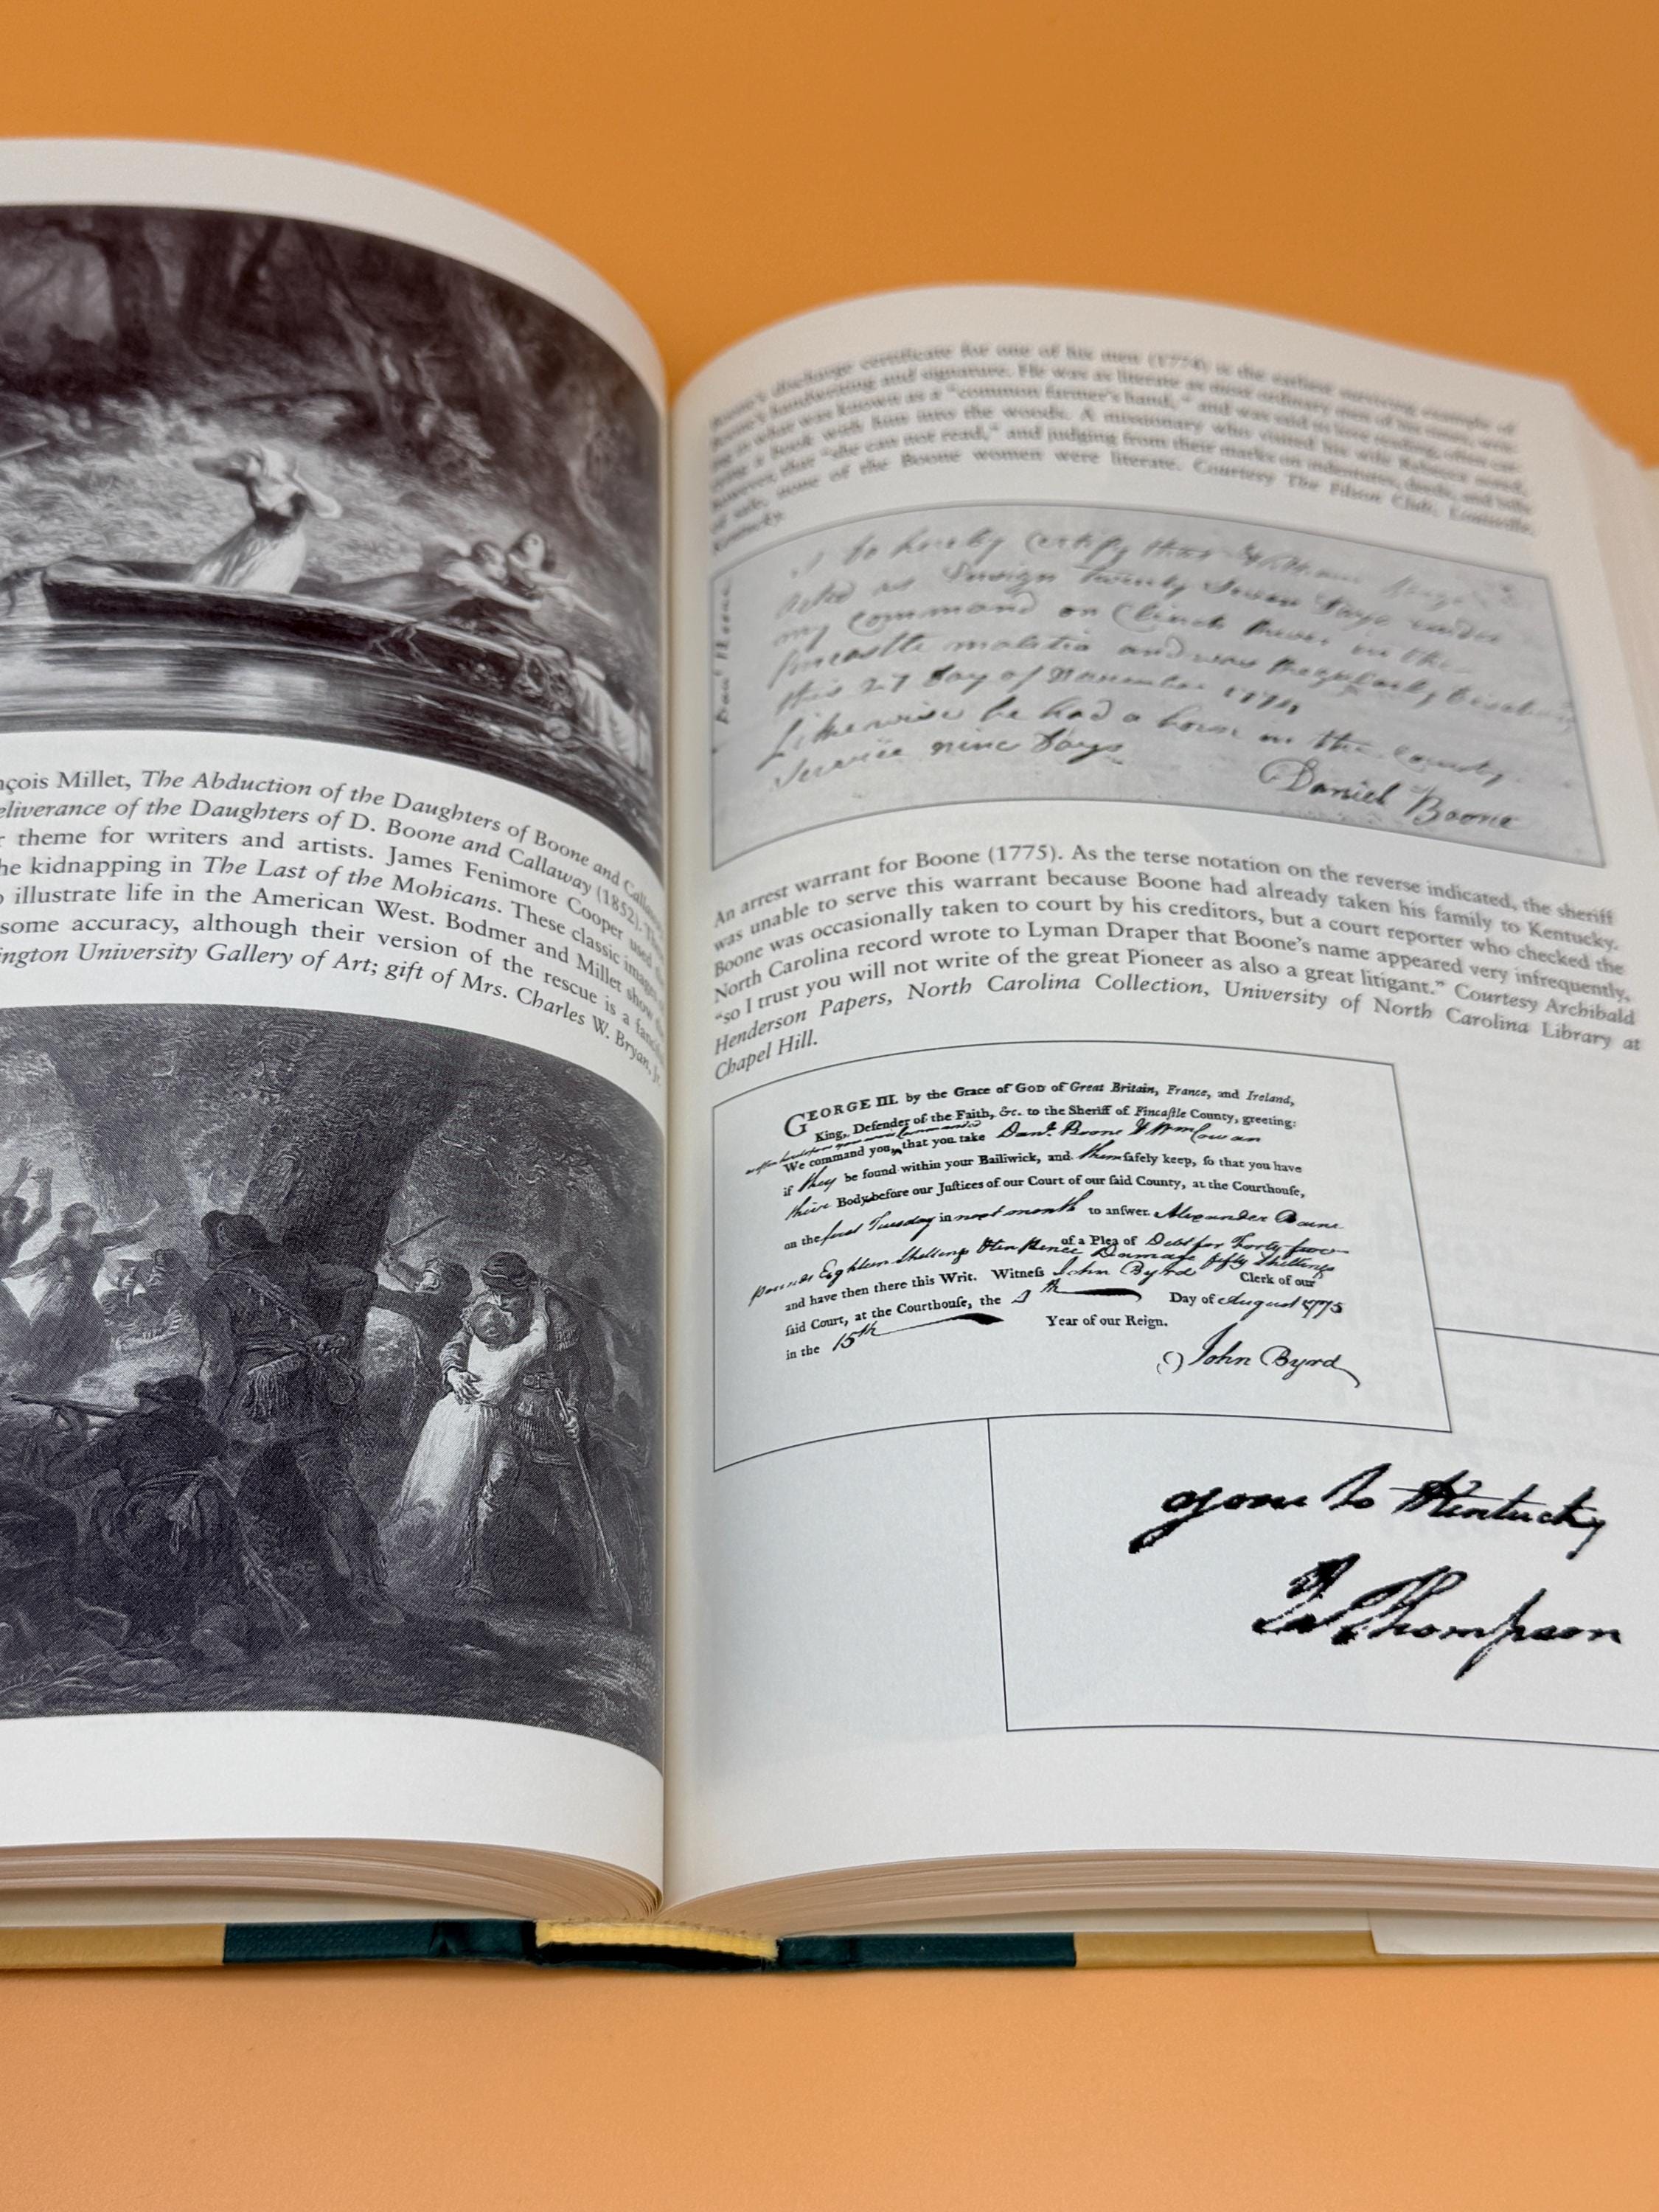 nçois Millet, The Abduction of the Daughters of Boone and Callaway
eliverance of the Daughters of D. Boone and Callaway (1852).
r theme for writers and artists. James Fenimore Cooper used
he kidnapping in The Last of the Mohicans. These classic images
o illustrate life in the American West. Bodmer and Millet show
some accuracy, although their version of the rescue is a
ington University Gallery of Art; gift of Mrs. Charles W. Bryan, Jr.
Boone's discharge certificate for one of his men (1774) is the earliest surviving example of
Boone's handwriting and signature. He was as literate as most ordinary men of his times,
in what was known as a "common farmer's hand," and was said to love reading, often
a book with him into the woods. A missionary who visited his wife Rebecca noted,
however, that "she can not read," and judging from their marks on indentures, deeds, and bills
of sale, none of the Boone women were literate. Courtesy The Filson Club, Louisville,
Kentucky.
I do hereby Certify that William
acted as Ensign twenty Seven Days under
my Command on Clinch River in the
fincastle malitia and was
this 27 Day of November 1774
Likewise he had a horse in the County
Service nine Days
Daniel Boone
An arrest warrant for Boone (1775). As the terse notation on the reverse indicated, the sheriff
was unable to serve this warrant because Boone had already taken his family to Kentucky.
Boone was occasionally taken to court by his creditors, but a court reporter who checked the
North Carolina record wrote to Lyman Draper that Boone's name appeared very infrequently,
"so I trust you will not write of the great Pioneer as also a great litigant." Courtesy Archibald
Henderson Papers, North Carolina Collection, University of North Carolina Library at
Chapel Hill.
GEORGE III. by the Grace of GOD of Great Britain, France, and Ireland,
King, Defender of the Faith, &c. to the Sheriff of Fincaſtle County, greeting:
We command you, that you take Danl. Boone & Wm Cowan
if they be found within your Bailiwick, and them ſafely keep, ſo that you have
their Body before our Juſtices of our Court of our ſaid County, at the Courthouſe,
on the first Tuesday in next month to anſwer Alexander Baine
of a Plea of Debt for Forty five
pounds Eighteen Shillings & ten Pence Damage fifty Shillings
and have then there this Writ. Witneſs John Byrd Clerk of our
ſaid Court, at the Courthouſe, the th Day of August 1775
in the 15th Year of our Reign.
John Byrd
gone to Kentucky
Thompson